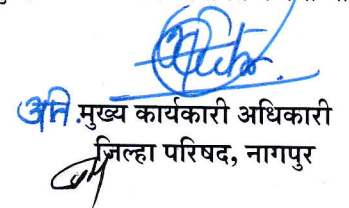 अति.मुख्य कार्यकारी अधिकारी
जिल्हा परिषद, नागपुर